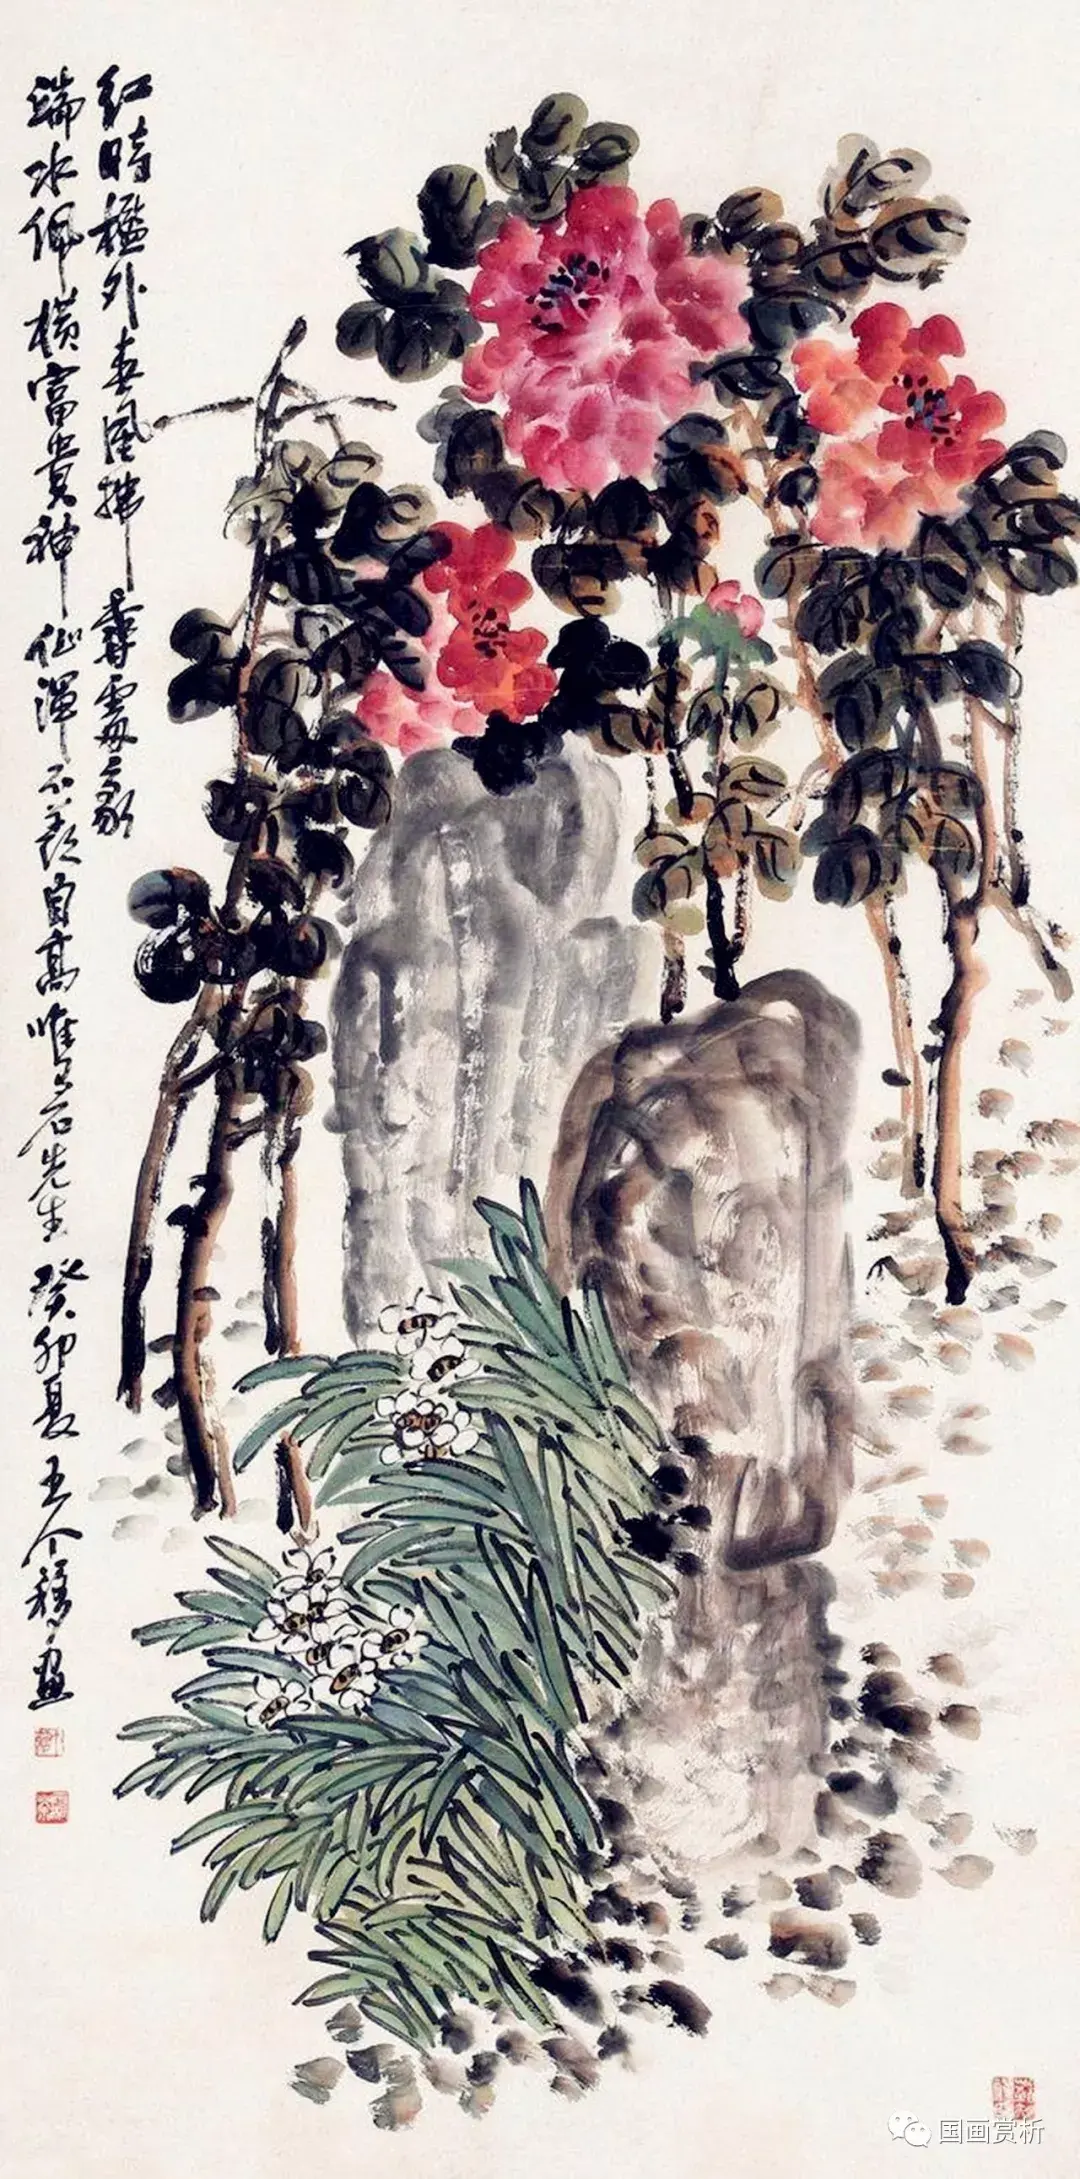 红时槛外春风拂香处毫
端水佩横富贵神仙浑不羡自高唯有石先生癸卯夏王个簃画
国画赏析